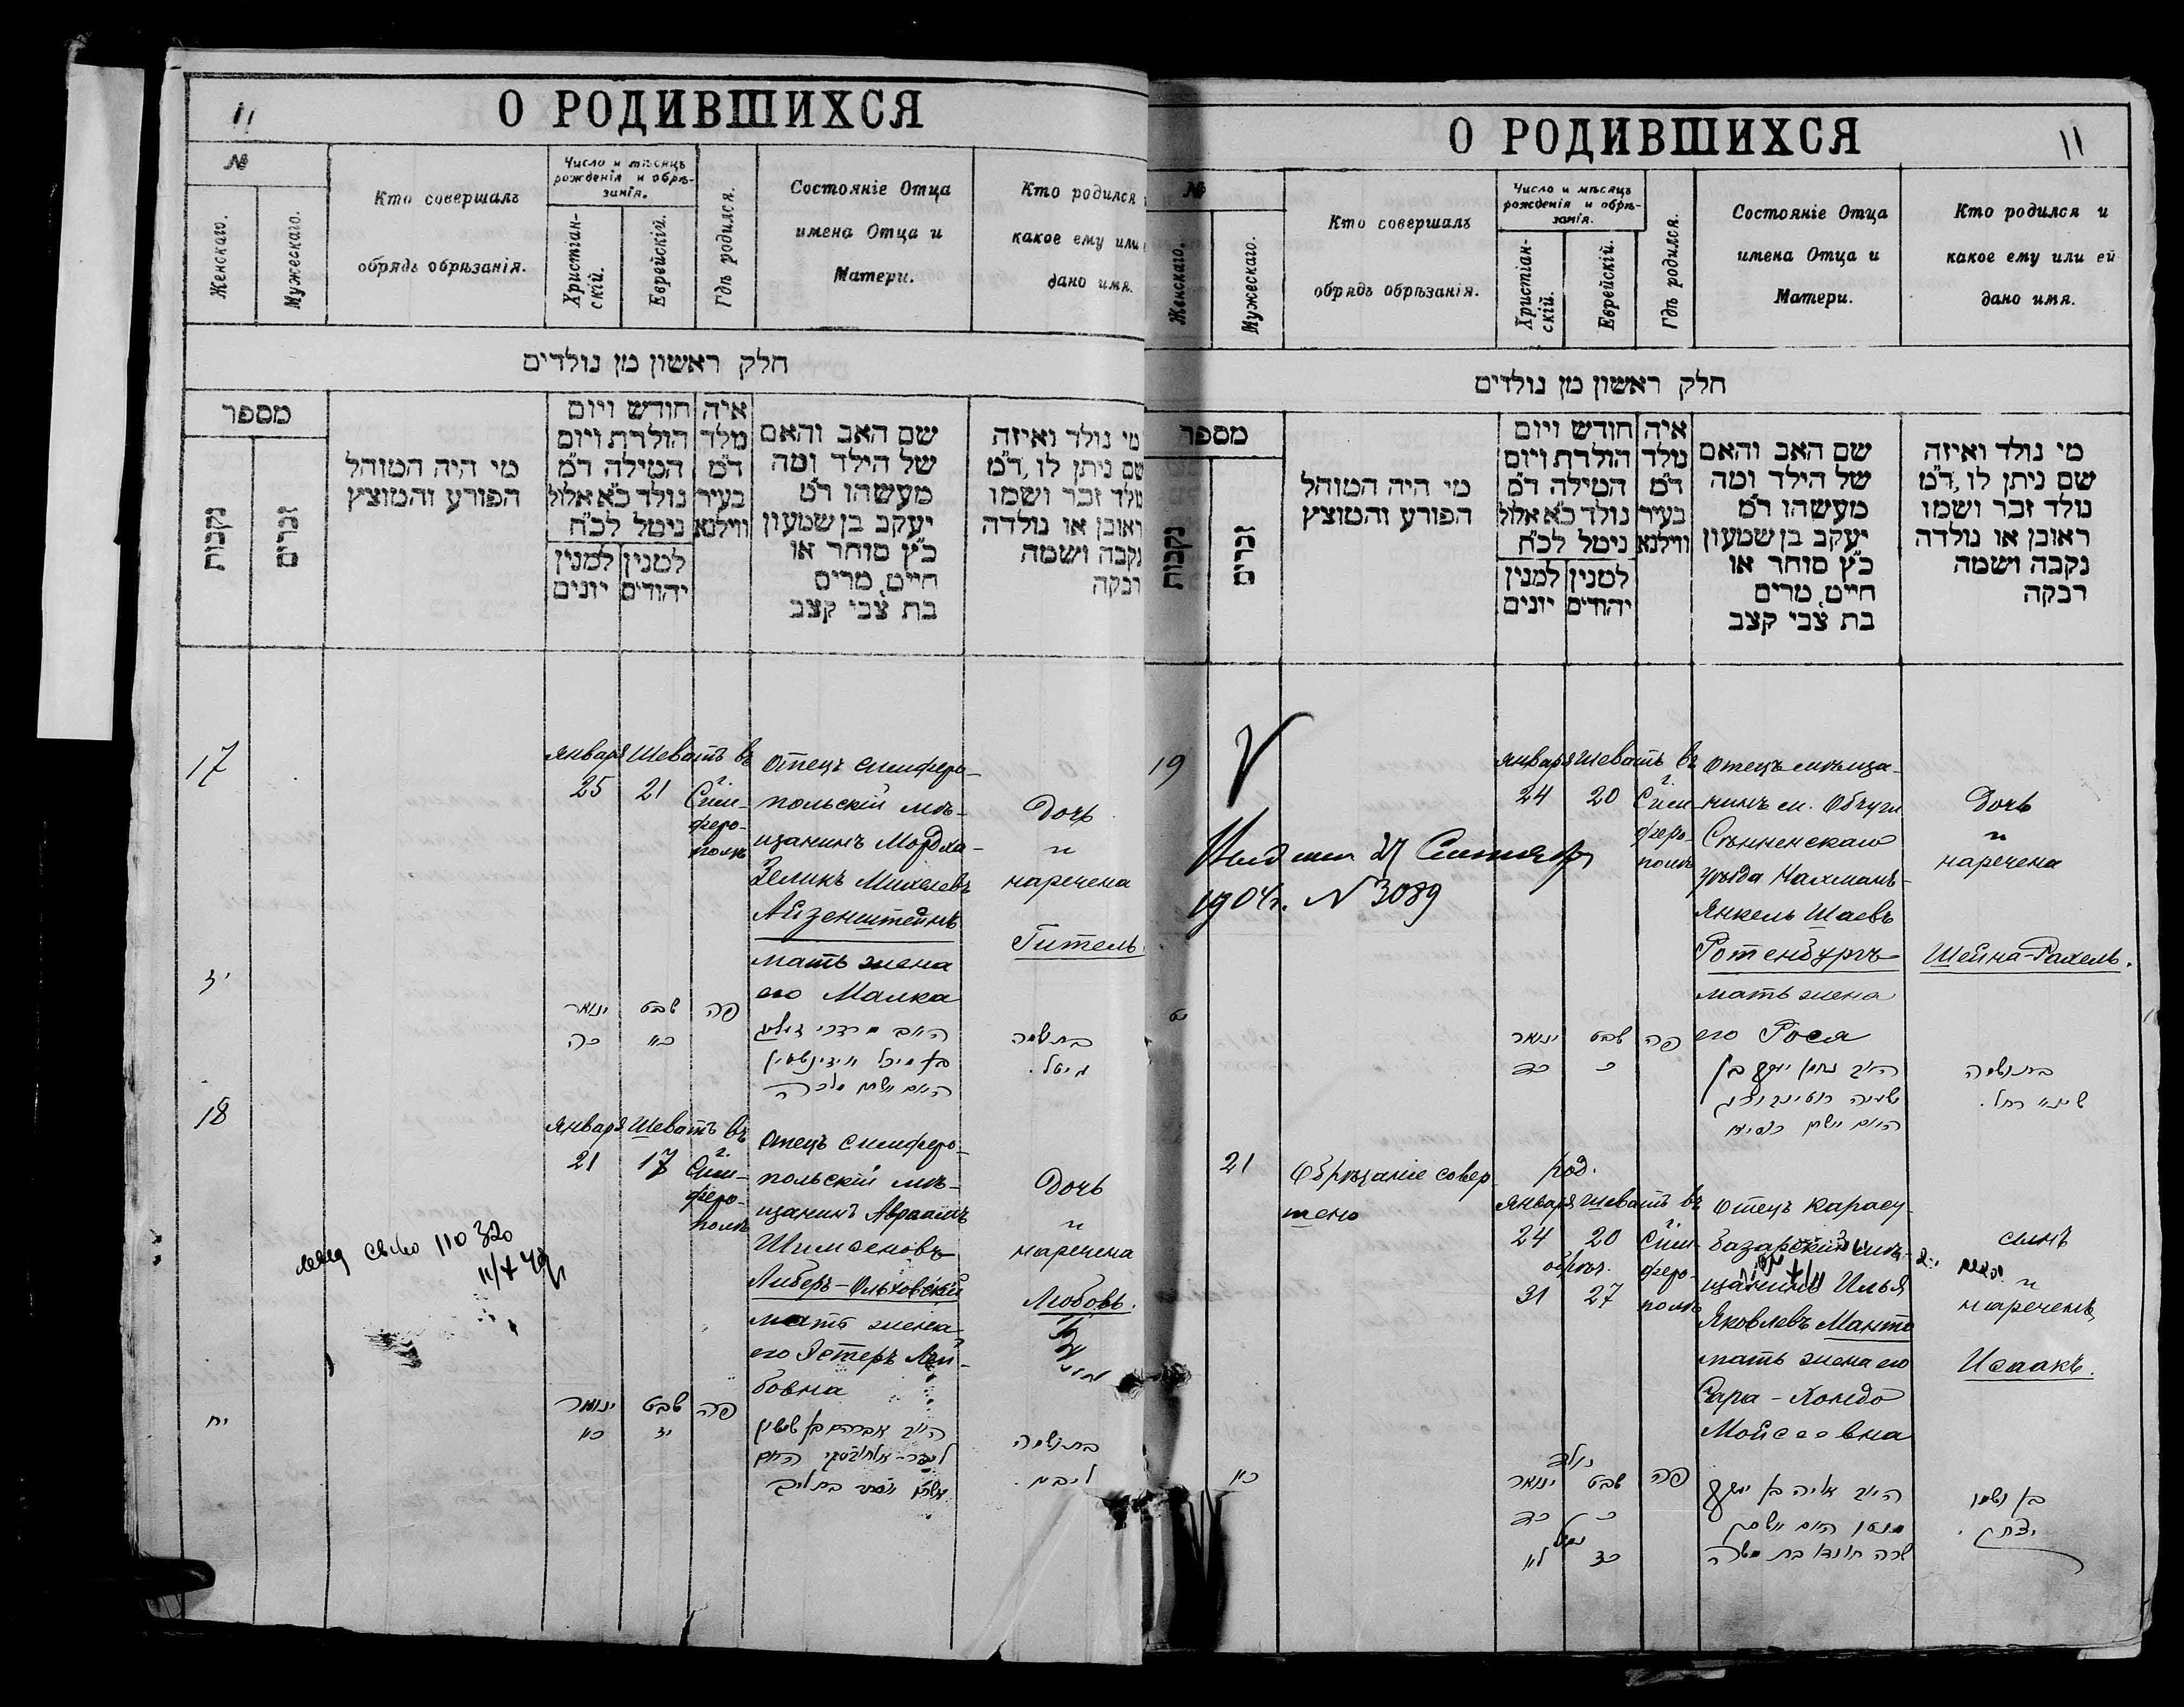 11
О РОДИВШИХСЯ
№
Женскаго.
Мужескаго.
Кто совершалъ
обрядъ обрѣзанія.
Число и мѣсяцъ
рожденія и обрѣ-
занія.
Христіан-
скій.
Еврейскій.
Гдѣ родился.
Состояніе Отца
имена Отца и
Матери.
Кто родился
какое ему или
дано имя.
חלק ראשון מן נולדים
מספר
נקבות
זכרים
מי היה המוהל
הפורע והמוצץ
חודש ויום
הולדת ויום
המילה ד״מ
נולד כ״א אלול
ניטל לכ״ח
למנין
יונים
למנין
יהודים
איה
נולד
ד״מ
בעיר
ווילנא
שם האב והאם
של הילד ומה
מעשהו ד״מ
יעקב בן שמעון
כ״ץ סוחר או
חייט, מרים
בת צבי קצב
מי נולד ואיזה
שם ניתן לו, ד״מ
נולד זכר ושמו
ראובן או נולדה
נקבה ושמה
רבקה
17
Января Шеватъ въ
25 21 г. Сим-
феро-
полѣ
Отецъ симферо-
польскій мѣ-
щанинъ Мордха-
Зеликъ Михелевъ
Айзенштейнъ
мать жена
его Малка
Дочь
и
наречена
Гитель.
יז
ינואר שבט פה
כה כא
בת ושמה
גיטל.
18
Января Шеватъ въ
21 17 г. Сим-
феро-
полѣ
Отецъ симферо-
польскій мѣ-
щанинъ Авраамъ
Шимоновъ
Либеръ-Ольховскій
мать жена
его Эстеръ Лей-
бовна
Дочь
и
наречена
Любовь.
110320
יח
ינואר שבט פה
כא יז
בת ושמה
ליבא.
О РОДИВШИХСЯ
11
№
Женскаго.
Мужескаго.
Кто совершалъ
обрядъ обрѣзанія.
Число и мѣсяцъ
рожденія и обрѣ-
занія.
Христіан-
скій.
Еврейскій.
Гдѣ родился.
Состояніе Отца
имена Отца и
Матери.
Кто родился и
какое ему или ей
дано имя.
חלק ראשון מן נולדים
מספר
נקבות
זכרים
מי היה המוהל
הפורע והמוצץ
חודש ויום
הולדת ויום
המילה ד״מ
נולד כ״א אלול
ניטל לכ״ח
למנין
יונים
למנין
יהודים
איה
נולד
ד״מ
בעיר
ווילנא
שם האב והאם
של הילד ומה
מעשהו ד״מ
יעקב בן שמעון
כ״ץ סוחר או
חייט, מרים
בת צבי קצב
מי נולד ואיזה
שם ניתן לו, ד״מ
נולד זכר ושמו
ראובן או נולדה
נקבה ושמה
רבקה
19
Января Шеватъ въ
24 20 г. Сим-
феро-
полѣ
27 Сентября
1904г. N 3089
Отецъ мѣща-
нинъ м. Обчуги
Сѣнненскаго
уѣзда Нахманъ-
Янкель Шаевъ
Ротенбургъ
мать жена
его Рося
Дочь
и
наречена
Шейна-Рахель.
יט
ינואר שבט פה
כד כ
בת ושמה
שיינא רחל.
21
Обрѣзаніе совер-
шено
род.
Января Шеватъ въ
24 20 г. Сим-
обрѣз. феро-
31 27 полѣ
Отецъ карасу-
базарскій мѣ-
щанинъ Илья
Яковлевъ Манто
мать жена его
Сара-Хондо
Мойсеевна
сынъ
и
нареченъ
Исаакъ.
כא
נולד
ינואר שבט פה
כד כ
נימול
לא כז
היוב אליה בן יעקב
מנטו האם אשתו
שרה חונדו בת משה
בן ושמו
יצחק.